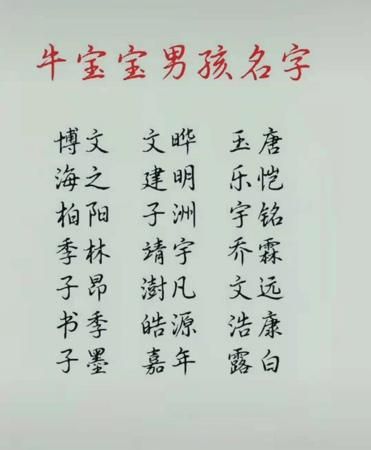 牛宝宝男孩名字
博文 文晔 玉唐
海之 建明 乐恺
柏阳 子洲 宇铭
季林 靖宇 乔霖
子昂 澍凡 文远
书季 皓源 浩康
子墨 嘉年 露白